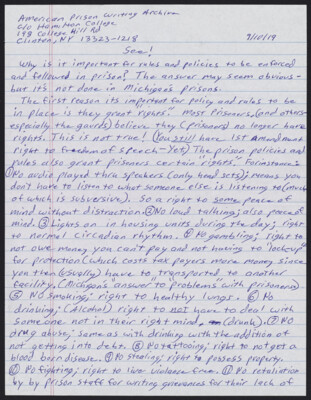 American Prison Writing Archive
c/o Hamilton College
198 College Hill Rd
Clinton, NY 13323-1218
9/10/19
See!
Why is it important for rules and policies to be enforced
and followed in prison? The answer may seem obvious -
but it's not done in Michigan's prisons.
The first reason its important for policy and rules to be
in place is they grant rights. Most prisoners (and others -
especially the guards) believe they (prisoners) no longer have
rights. This is not true! (You still have 1st Amendment
right to freedom of speech - Yet) The prison policies and
rules also grant prisoners certain "rights." For instance:
① No audio played thru speakers (only head sets); means you
don't have to listen to what someone else is listening to (much
of which is subversive). So a right to some peace of
mind without distraction. ② No loud talking; also peace of
mind. ③ Lights on in housing units during the day; right
to normal circadian rhythms. ④ No gambling; right to
not owe money you can't pay and not having to "lock-up"
for protection (which costs tax payers more money since
you then (usually) have to transported to another
facility. (Michigan's answer to problems with prisoners).
⑤ No smoking; right to healthy lungs. ⑥ No
drinking; (Alcohol) right to not have to deal with
someone not in their right mind, (drunk). ⑦ No
drug abuse; same as with drinking with the addition of
not getting into debt. ⑧ No tattooing; right to not get a
blood born disease. ⑨ No stealing; right to possess property.
⑩ No fighting; right to live violence free. ⑪ No retaliation
by by prison staff for writing grievances for their lack of